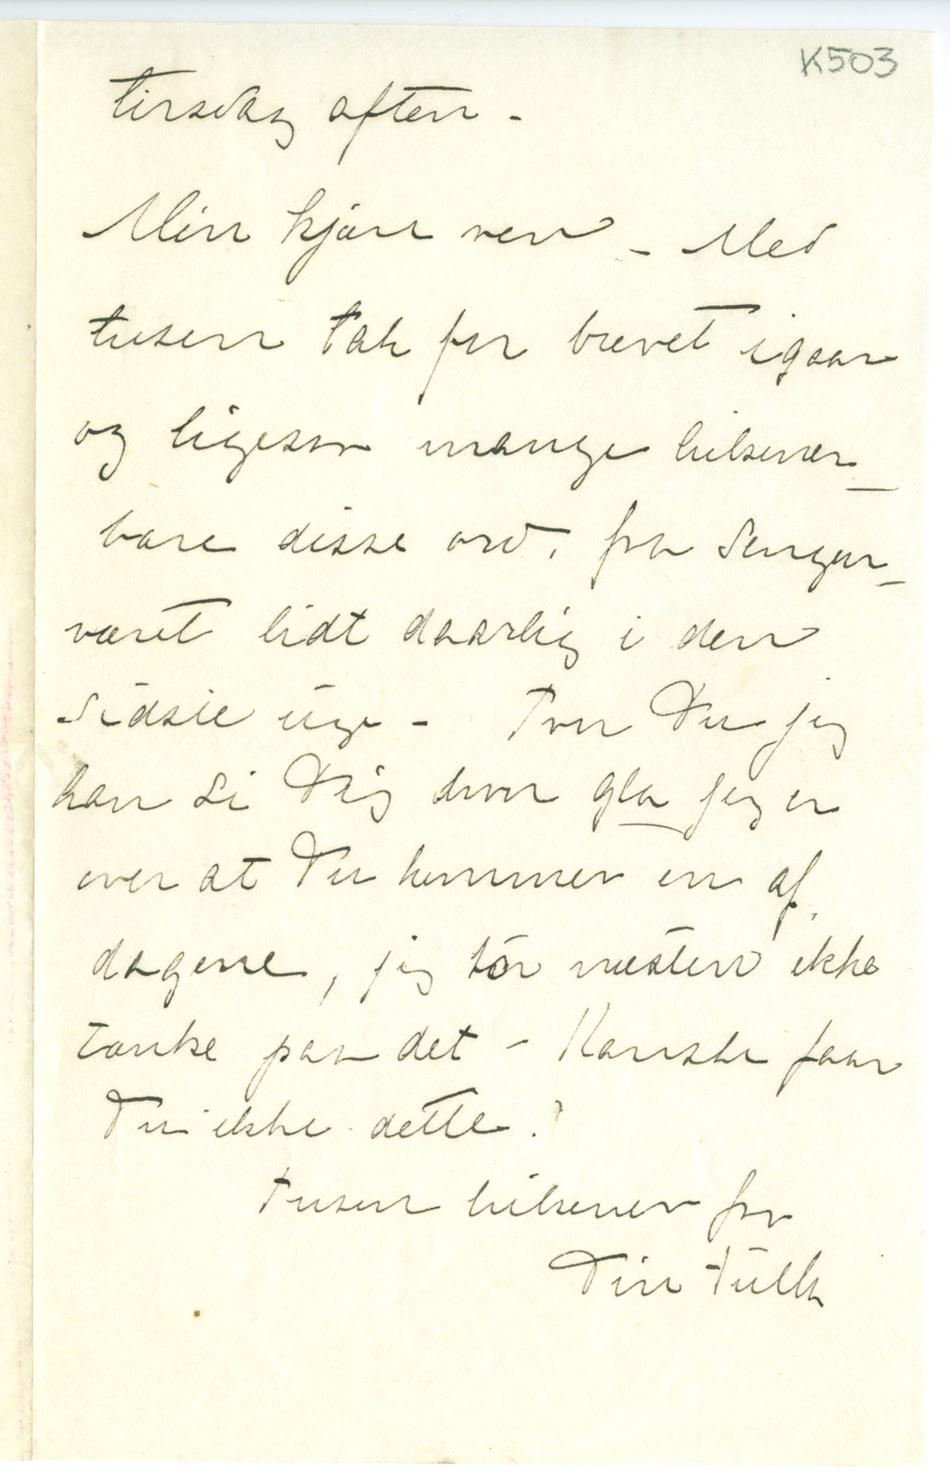 K503
tirsdag aften -
Min kjære ven - Med
tusen tak for brevet igaar
og ligesaa mange hilsener -
bare disse ord, fra Sengen -
været lidt daarlig i den
sidste uge - Tror Du jeg
kan si Dig hvor gla jeg er
over at Du kommer en af
dagene, jeg tör næsten ikke
tænke paa det - Kanske faar
Du ikke dette?
Tusen hilsener fra
Din Tulla